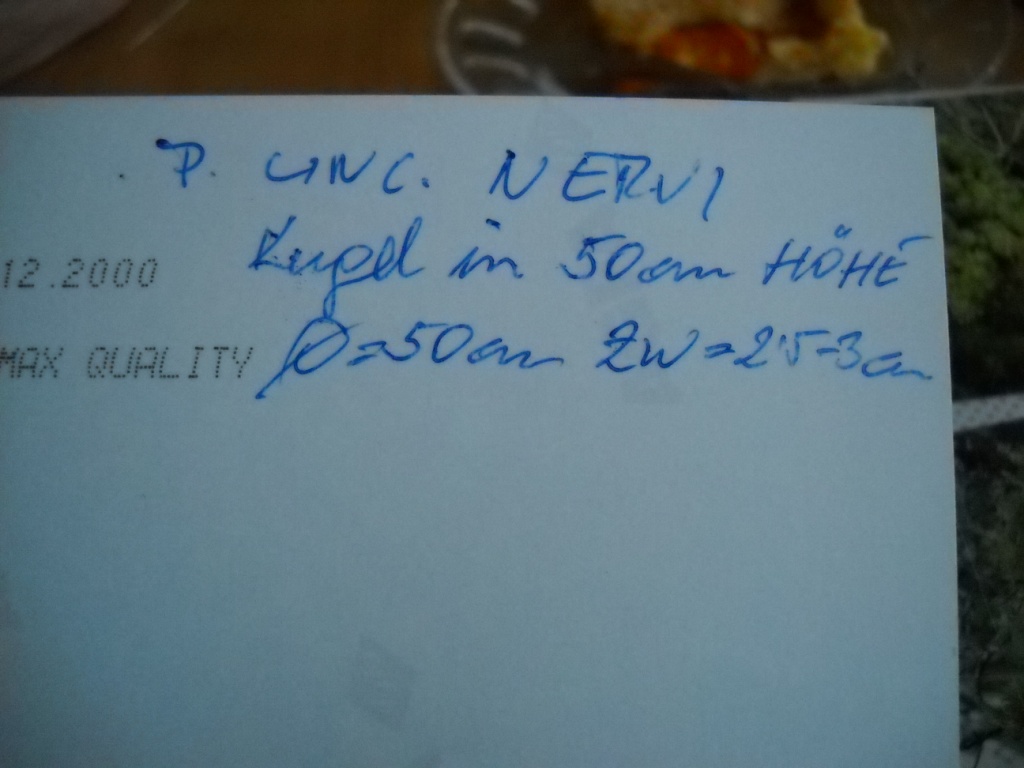 P. UNC. NERVI
Kugel in 50cm HÖHE
12.2000
Ø=50cm ZW=2,5-3cm
MAX QUALITY